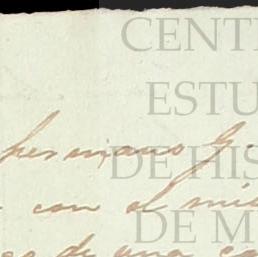 CENT
ESTU
hermano G.
DE HIS
con el mis
DE M
de una ca